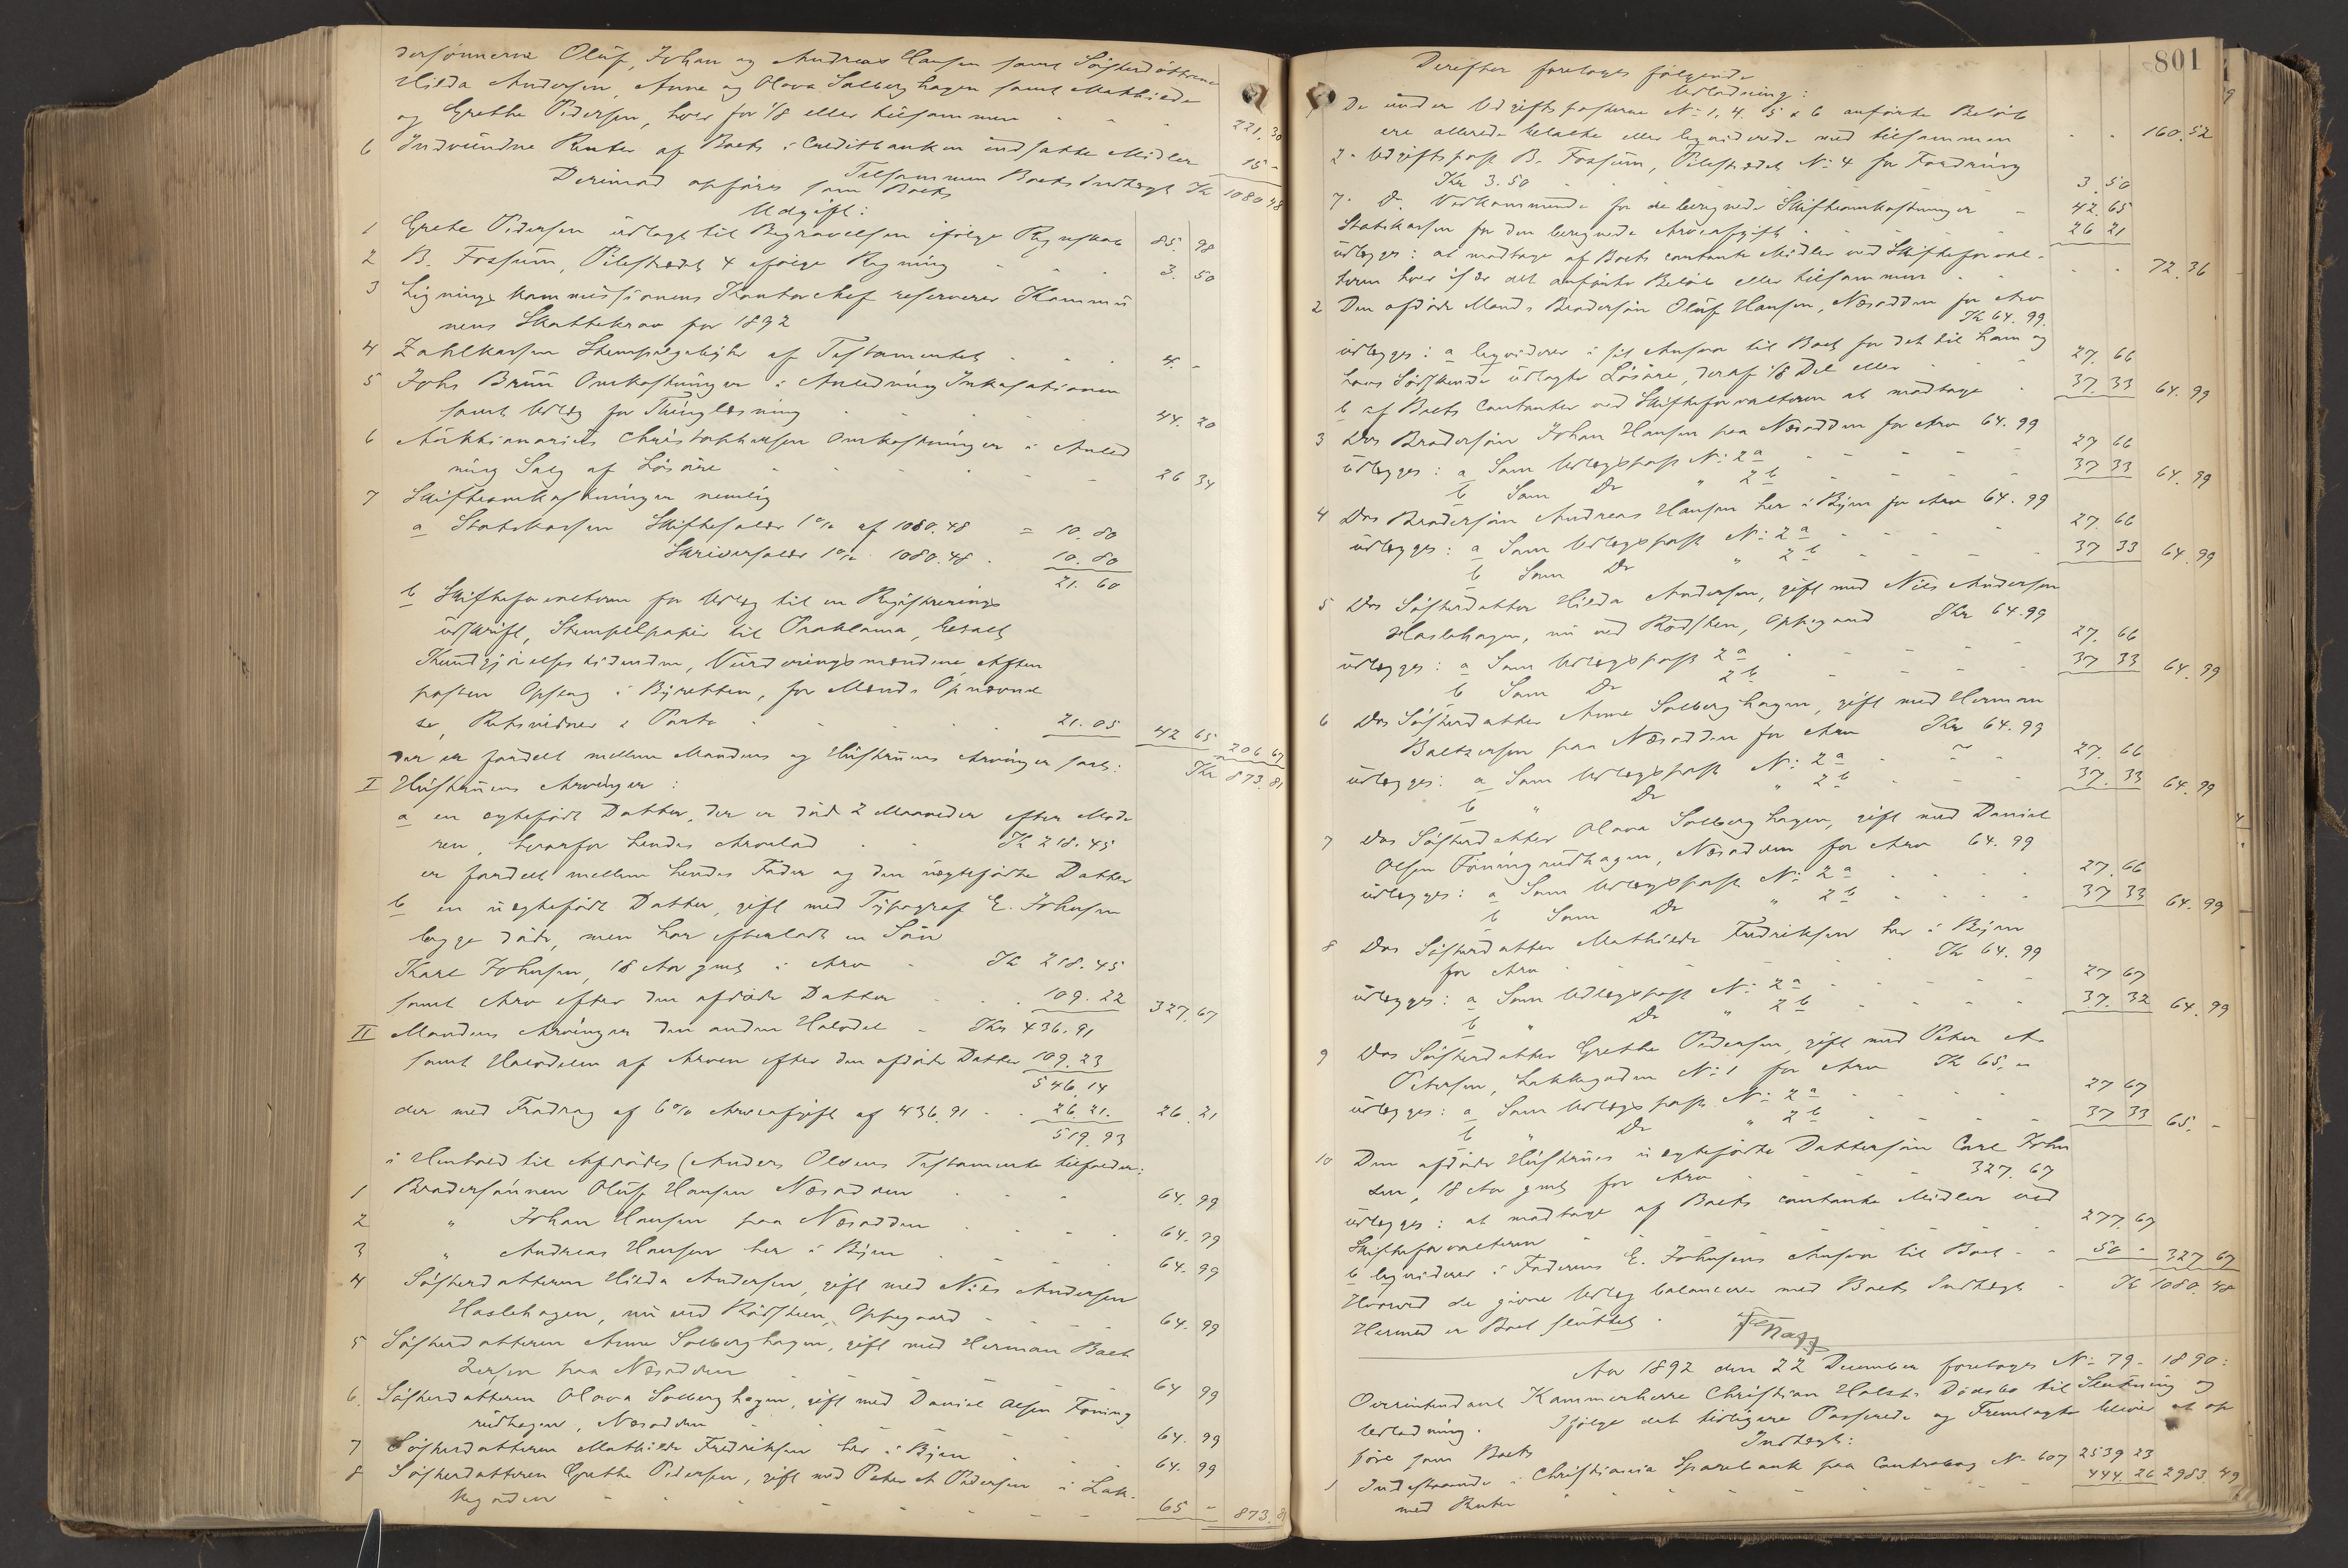 dersønnerne Oluf, Johan og Andreas Hansen samt Søsterdøttrene
Hilda Andersen, Anne og Olava Solberghagen samt Mathilde
og Grethe Pedersen, hver for 1/8 eller tilsammen - - - 221. 30
6 Indvundne Renter af Boets i Creditbanken indsatte Midler 15 -
Tilsammen Boets Indtægt Kr 1080 48
Derimod opføres som Boets
Udgift:
1 Grete Pedersen udlagt til Begravelsen ifølge Regnskab 85. 98
2 B. Fossum, Pilestrædet 4 ifølge Regning - - - 3. 50
3 Ligningskommissionens Kontorchef reserverer Kommu
nens Skattekrav for 1892
4 Zahlkassen Stempelgebyhr af Testamentet - - - 4. -
5 Johs Bruun Omkostninger i Anledning Inkasationen
samt Udlæg for Thinglæsning - - - 44. 20
6 Auktionarius Christophersen Omkostninger i Anled
ning Salg af Løsøre - - - 26 34
7 Skifteomkostninger nemlig
a Statskassen Skiftesalær 1% af 1080.48 = 10.80
Skriversalær 1% - 1080.48 - 10.80
21. 60
b Skifteforvalteren for Udlæg til en Registrerings
udskrift, Stempelpapir til Proklama, betalt
Kundgjørelsestidenden, Vurderingsmændene Aften
posten Opslag i Byretten, for Mænds Opnævnel
se, Retsvidner & Porto - - - 21.05 42 65 206 67
der er fordelt mellem Mandens og Hustruens Arvinger saal: Kr 873. 81
I Hustruens Arvinger:
a en ægtefødt Datter, der er død 2 Maaneder efter Mode
ren, hvorfor hendes Arvelod - - Kr 218.45
er fordelt mellem hendes Fader og den uægtefødte Datter
b en uægtefødt Datter, gift med Typograf E. Johnsen
begge døde, men har efterladt en Søn
Karl Johnsen, 18 Aar gml i Arv - Kr 218.45
samt Arv efter den afdøde Datter - - 109.22 327.67
II Mandens Arvinger den anden Halvdel - Kr 436.91
samt Halvdelen af Arven efter den afdøde Datter 109.23
546.14
der med Fradrag af 6% Arveafgift af 436.91 - - 26.21. 26 21
519.93
i Henhold til Afdødes (Anders Olsens Testamente tilfalder:
1 Brodersønnen Oluf Hansen Næsodden - - - 64. 99
2 " Johan Hansen paa Næsodden - - - 64. 99
3 " Andreas Hansen her i Byen - - - 64. 99
4 Søsterdatteren Hilda Andersen, gift med Nils Andersen
Haslehagen, nu ved Rødsten, Oppegaard - - - 64. 99
5 Søsterdatteren Anne Solberghagen, gift med Herman Balt
zersen paa Næsodden - - - 64 99
6. Søsterdatteren Olava Solberghagen, gift med Daniel Olsen Toning
rudhagen, Næsodden - - - 64. 99
7 Søsterdatteren Mathilde Fredriksen her i Byen - - - 64. 99
8 Søsterdatteren Grethe Pedersen, gift med Peter A Pedersen i Lak-
kegaden - - - 65 - 873. 8
801
Derefter foretages følgende
Udlodning:
De under Udgiftsposterne No 1, 4. 5 & 6 anførte Beløb
ere allerede betalte eller ligviderede med tilsammen - - 160.52
2. Udgiftspost B. Fossum, Pilestrædet No 4 for Fordring
Kr 3.50 - - - 3. 50
7. Do Vedkommende for de beregnede Skifteomkostninger - 42. 65
Statskassen for den beregnede Arveafgift - - 26 21
udlægges: at modtage af Boets contante Midler ved Skifteforval-
teren hver især det anførte Beløb eller tilsammen - - - 72.36
2 Den afdøde Mands Brodersøn Oluf Hansen, Næsodden for Arv
Kr 64. 99.
udlægges: a ligviderer i sit Ansvar til Boet for det til ham og
hans Sødskende udlagte Løsøre, deraf 1/8 Del eller - - 27. 66
b af Boets Contanter ved Skifteforvalteren at modtage - 37. 33 64. 99
3 Dos Brodersøn Johan Hansen paa Næsodden for Arv 64. 99
udlægges: a Som Udlægspost No 2 a - - - 27 66
b Som Do " 2 b - - - 37 33 64. 99
4 Dos Brodersøn Andreas Hansen her i Byen for Arv 64. 99
udlægges: a Som Udlægspost No 2 a - - - 27. 66
b Som Do " 2 b - - - 37 33 64. 99
5 Dos Søsterdatter Hilda Andersen, gift med Nils Andersen
Haslehagen, nu ved Rødsten, Oppegaard Kr 64.99
udlægges: a Som Udlægspost 2 a - - - 27. 66
b Som Do 2 b - - - 37. 33 64. 99
6 Dos Søsterdatter Anne Solberghagen, gift med Herman
Baltzersen paa Næsodden for Arv Kr 64.99
udlægges: a Som Udlægspost No 2 a - - - 27. 66
b " Do " 2 b - - - 37. 33 64. 99
7 Dos Søsterdatter Olava Solberghagen, gift med Daniel
Olsen Toningrudhagen, Næsodden for Arv 64. 99
udlægges: a Som Udlægspost No 2 a - - - 27. 66
b Som Do " 2 b - - - 37 33 64. 99
8 Dos Søsterdatter Mathilde Fredriksen her i Byen
for Arv - - - Kr 64. 99
udlægges: a Som Udlægspost No 2 a - - - 27 67
b " Do " 2 b - - - 37. 32 64. 99
9 Dos Søsterdatter Grethe Pedersen, gift med Peter A.
Petersen, Lakkegaden No 1 for Arv Kr 65. -
udlægges: a Som Udlægspost No 2 a - - - 27 67
b " Do " 2 b - - - 37 33 65. -
10 Den afdøde Hustrues uægtefødte Dattersøn Carl John
sen, 18 Aar gml for Arv - - - 327. 67
udlægges: at modtage af Boets contante Midler ved
Skifteforvalteren - - - 277.67
b ligviderer i Faderens E. Johnsens Ansvar til Boet - - 50 - 327 67
Hvorved de givne Udlæg balancerer med Boets Indtægt - Kr 1080. 48
Hermed er Boet sluttet.
Aar 1892 den 22 December foretoges No 79 - 1890:
Overintendant Kammerherre Christian Holsts Dødsbo til Slutning og
Udlodning. Ifølge det tidligere Passerede og Fremlagte bliver at op
føre som Boets Indtægt:
1 Indestaaende i Christiania Sparebank paa Contrabog No 607 2539 23
med Renter - - - 444. 26 2983. 49